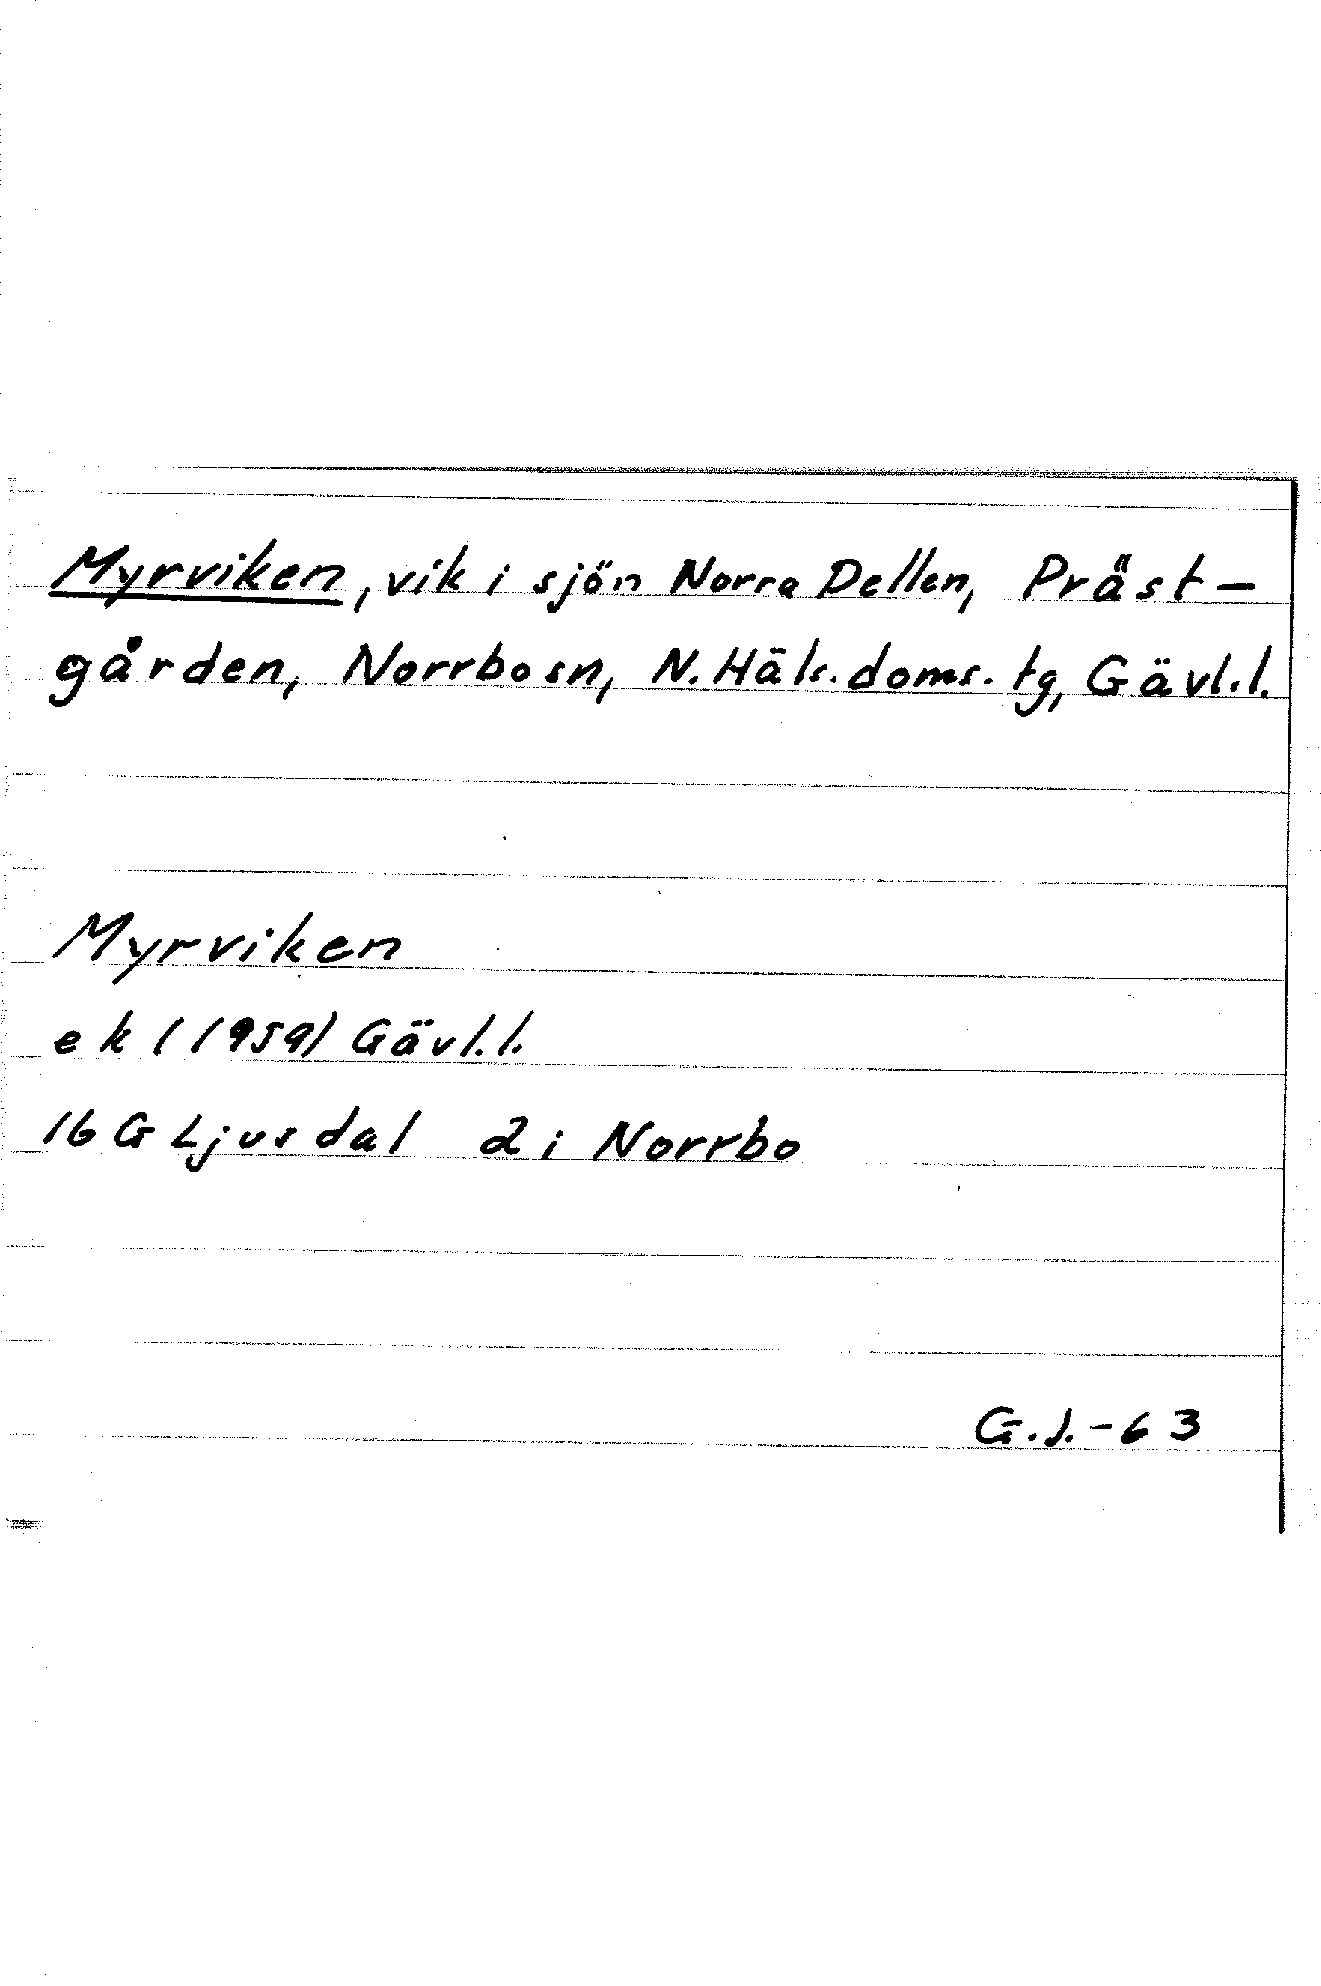 Myrviken, vik i sjön Norra Dellen, Präst-
gården, Norrbo sn, N. Häls. doms. tg, Gävl.l.
Myrviken
ek (1959) Gävl.l.
16 G Ljusdal 2 i Norrbo
G.J.-63